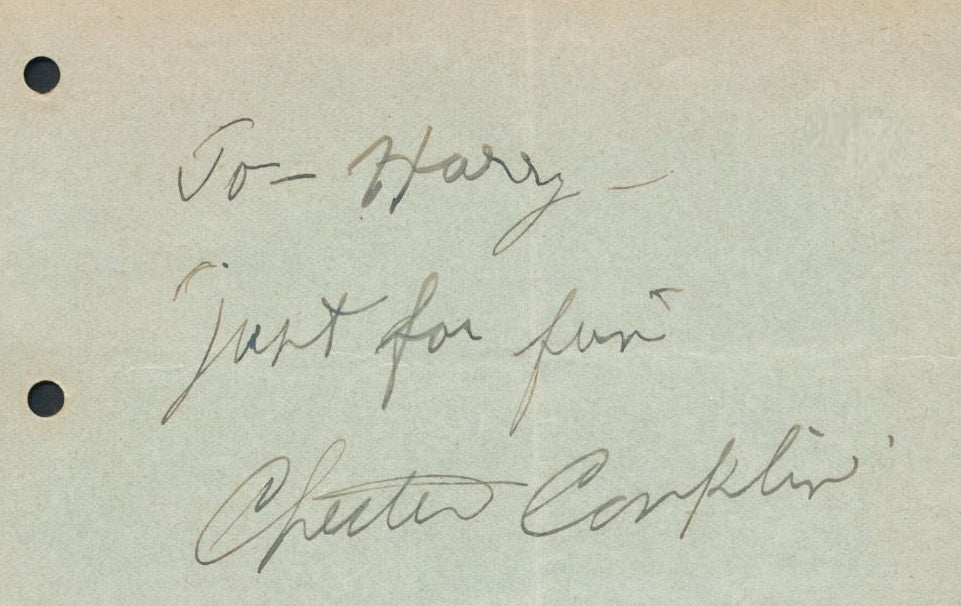 To - Harry -
"just for fun"
Chester Conklin